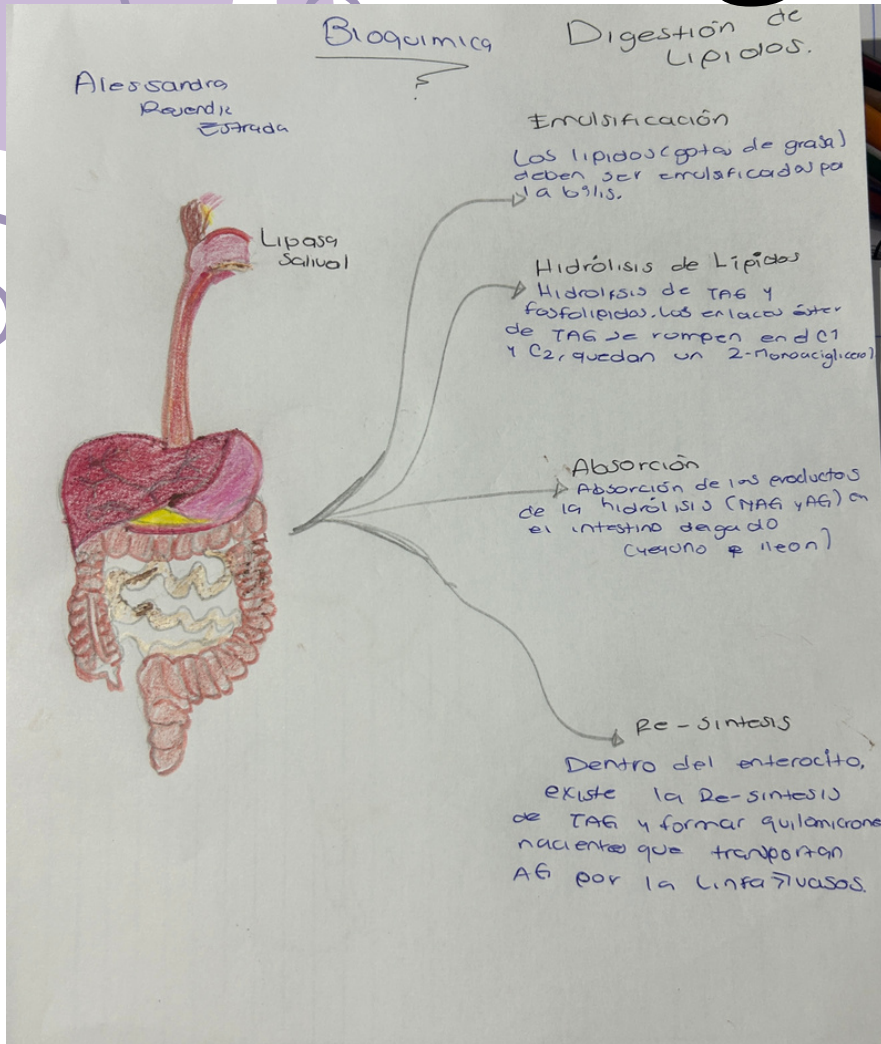 Bioquimica
Digestión de
Lipidos.
Alessandra
Estrada
Lipasa
Salival
Emulsificación
Los lipidos (gotas de grasa)
deben ser emulsificados po
la bilis.
Hidrólisis de Lípidos
Hidrolisis de TAG y
fosfolipidos. Los enlaces éster
de TAG se rompen en el C1
y C2, quedan un 2-Monoaciglicerol
Absorción
Absorción de los productos
de la hidrólisis (MAG y AG) en
el intestino delgado
(yeyuno e ileon)
Re-sintesis
Dentro del enterocito,
existe la Re-sintesis
de TAG y formar quilomicrone
nacientes que transportan
AG por la Linfa → vasos.